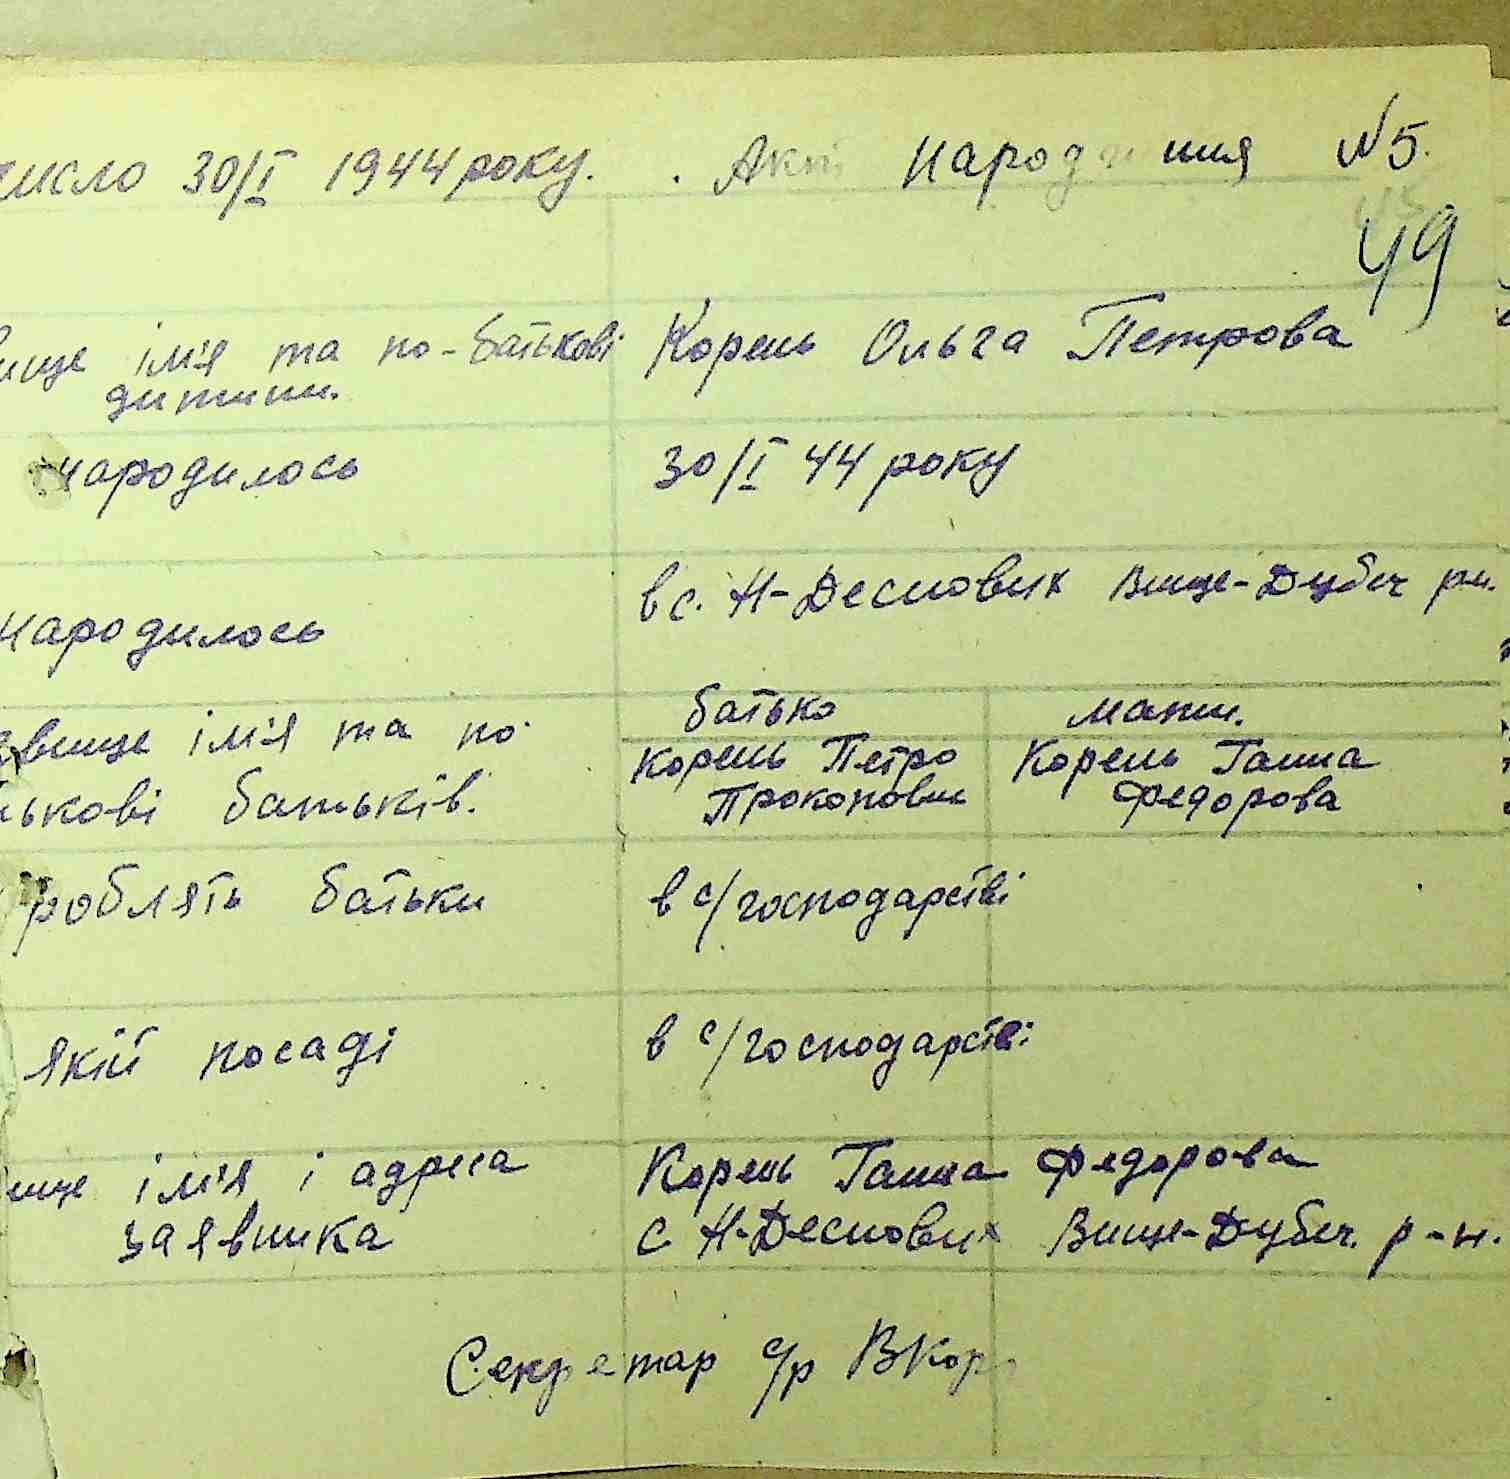 число 30/I 1944 року. Акт народження №5.
49
вище ім'я та по-батькові Корень Ольга Петрова
дитини.
народилось 30/I 44 року
в с. Н-Деснових Вище-Дубеч рн.
народилось
батько мати.
звище ім'я та по- Корень Петро Корень Ганна
ькові батьків. Прокопович Федорова
роблять батьки в с/господарстві
якій посаді в с/господарстві
ище ім'я і адреса Корень Ганна Федорова
заявника с Н-Деснових Вище-Дубеч. р-н.
Секретар с/р ВКор